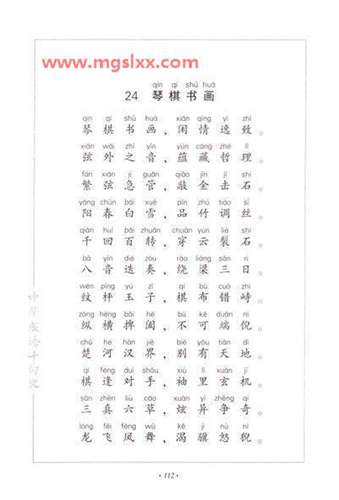 www.mgslxx.com
qín qí shū huà
24 琴棋书画
qín qí shū huà xián qíng yì zhì
琴棋书画，闲情逸致。
xián wài zhī yīn yùn cáng zhé lǐ
弦外之音，蕴藏哲理。
fán xián jí guǎn qiāo jīn jī shí
繁弦急管，敲金击石。
yáng chūn bái xuě pǐn zhú tiáo sī
阳春白雪，品竹调丝。
qiān huí bǎi zhuǎn chuān yún liè shí
千回百转，穿云裂石。
bā yīn dié zòu rào liáng sān rì
八音迭奏，绕梁三日。
wén píng yù zǐ qí bù cuò zhì
纹枰玉子，棋布错峙。
zòng héng bǎi hé bù kě duān ní
纵横捭阖，不可端倪。
chǔ hé hàn jiè bié yǒu tiān dì
楚河汉界，别有天地。
qí féng duì shǒu xiù lǐ xuán jī
棋逢对手，袖里玄机。
sān zhēn liù cǎo xuàn yì zhēng qí
三真六草，炫异争奇。
lóng fēi fèng wǔ kě jì nù ní
龙飞凤舞，渴骥怒猊。
中华成语千句文
·112·